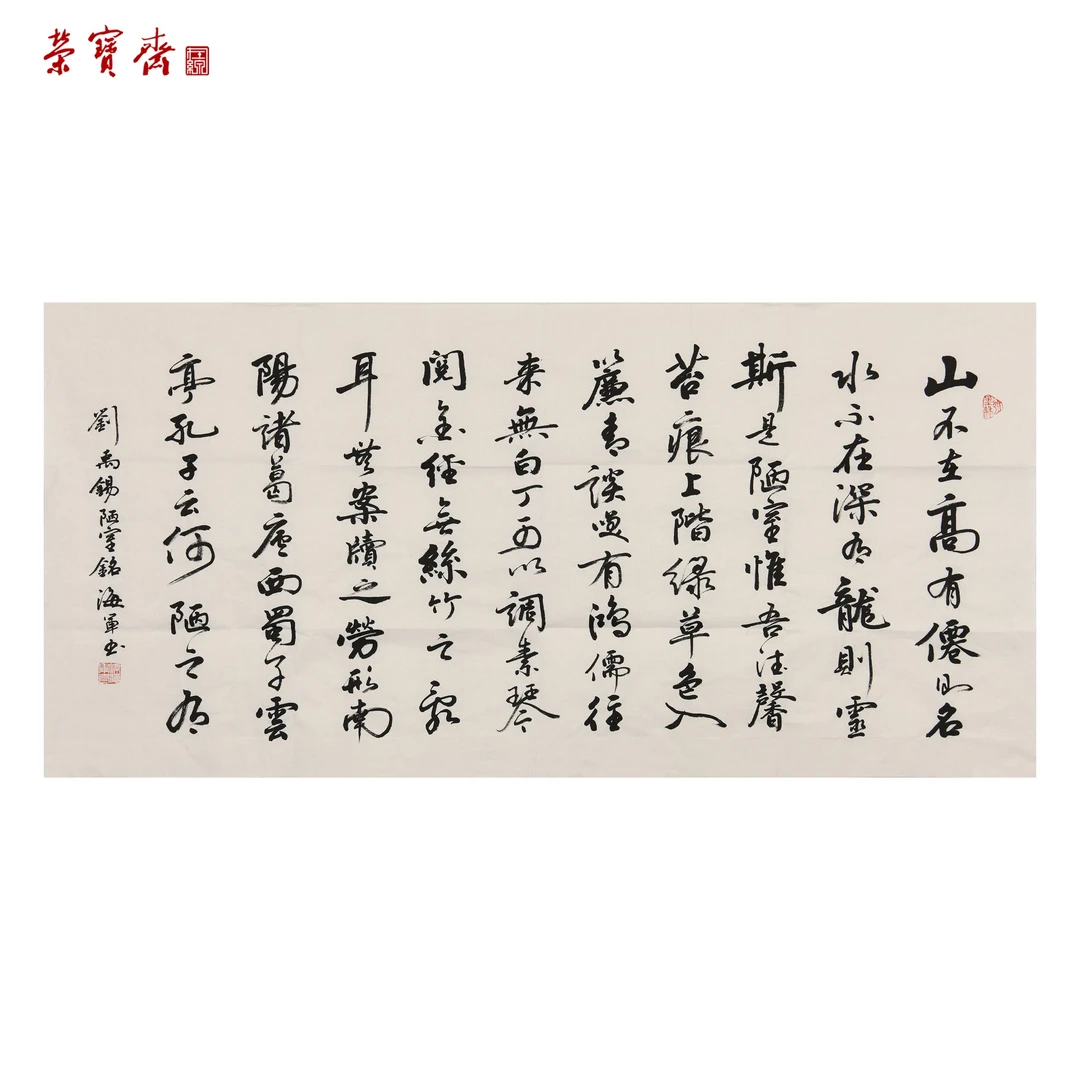 榮寶齋
山不在高有僊則名
水不在深有龍則靈
斯是陋室惟吾德馨
苔痕上階綠草色入
簾青談笑有鴻儒往
来無白丁可以調素琴
閱金經無絲竹之亂
耳無案牘之勞形南
陽諸葛廬西蜀子雲
亭孔子云何陋之有
劉禹錫陋室銘海軍书